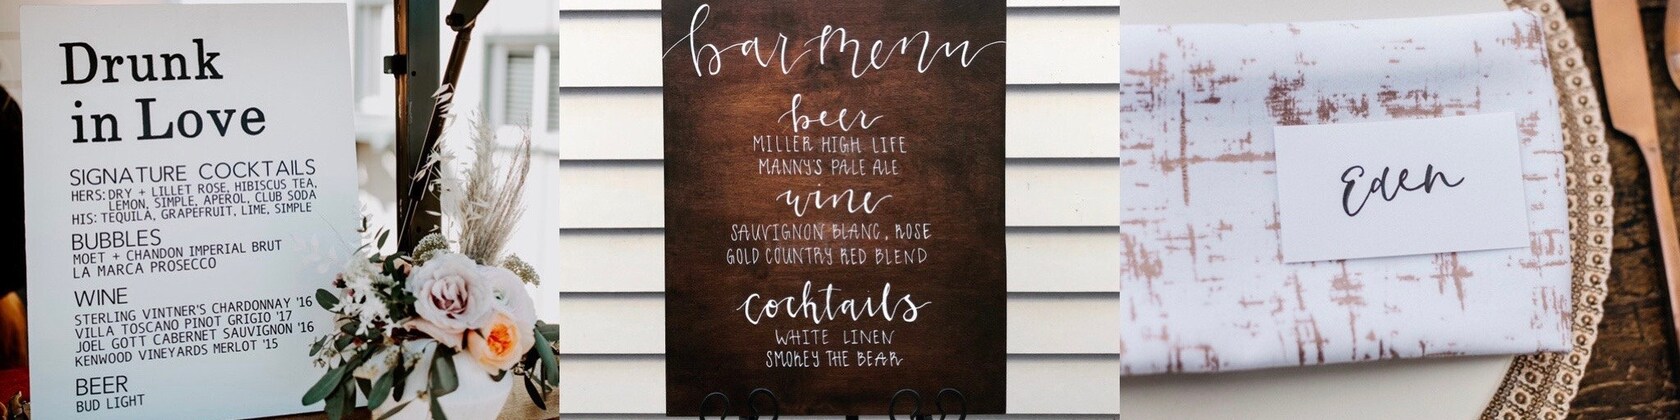 Drunk
in Love
SIGNATURE COCKTAILS
HERS: DRY + LILLET ROSE, HIBISCUS TEA,
LEMON, SIMPLE, APEROL, CLUB SODA
HIS: TEQUILA, GRAPEFRUIT, LIME, SIMPLE
BUBBLES
MOET + CHANDON IMPERIAL BRUT
LA MARCA PROSECCO
WINE
STERLING VINTNER'S CHARDONNAY '16
VILLA TOSCANO PINOT GRIGIO '17
JOEL GOTT CABERNET SAUVIGNON '16
KENWOOD VINEYARDS MERLOT '15
BEER
BUD LIGHT
bar menu
beer
MILLER HIGH LIFE
MANNY'S PALE ALE
wine
SAUVIGNON BLANC, ROSE
GOLD COUNTRY RED BLEND
cocktails
WHITE LINEN
SMOKEY THE BEAR
Eden